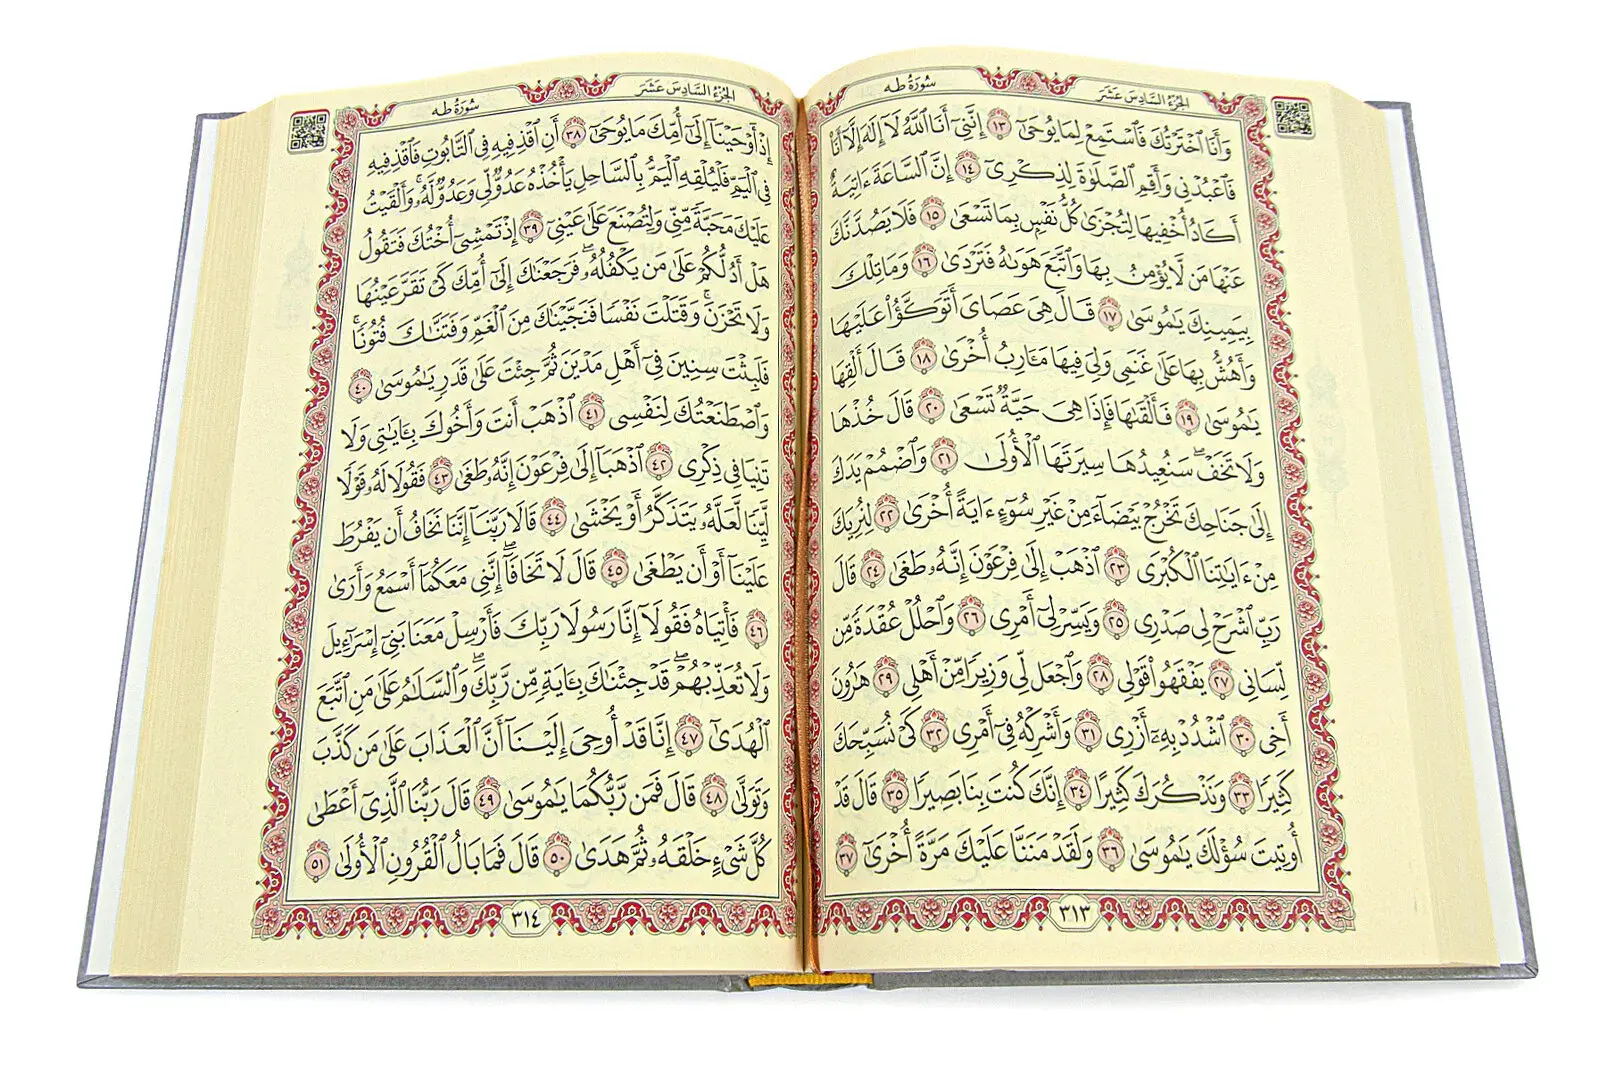 سُورَةُ طه
الجُزْءُ السَّادِسَ عَشَرَ
وَأَنَا ٱخْتَرْتُكَ فَٱسْتَمِعْ لِمَا يُوحَىٰٓ ١٣ إِنَّنِىٓ أَنَا ٱللَّهُ لَآ إِلَٰهَ إِلَّآ أَنَا۠
فَٱعْبُدْنِى وَأَقِمِ ٱلصَّلَوٰةَ لِذِكْرِىٓ ١٤ إِنَّ ٱلسَّاعَةَ ءَاتِيَةٌ
أَكَادُ أُخْفِيهَا لِتُجْزَىٰ كُلُّ نَفْسٍۭ بِمَا تَسْعَىٰ ١٥ فَلَا يَصُدَّنَّكَ
عَنْهَا مَن لَّا يُؤْمِنُ بِهَا وَٱتَّبَعَ هَوَىٰهُ فَتَرْدَىٰ ١٦ وَمَا تِلْكَ
بِيَمِينِكَ يَٰمُوسَىٰ ١٧ قَالَ هِىَ عَصَاىَ أَتَوَكَّؤُا۟ عَلَيْهَا
وَأَهُشُّ بِهَا عَلَىٰ غَنَمِى وَلِىَ فِيهَا مَـَٔارِبُ أُخْرَىٰ ١٨ قَالَ أَلْقِهَا
يَٰمُوسَىٰ ١٩ فَأَلْقَىٰهَا فَإِذَا هِىَ حَيَّةٌ تَسْعَىٰ ٢٠ قَالَ خُذْهَا
وَلَا تَخَفْ ۖ سَنُعِيدُهَا سِيرَتَهَا ٱلْأُولَىٰ ٢١ وَٱضْمُمْ يَدَكَ
إِلَىٰ جَنَاحِكَ تَخْرُجْ بَيْضَآءَ مِنْ غَيْرِ سُوٓءٍ ءَايَةً أُخْرَىٰ ٢٢ لِنُرِيَكَ
مِنْ ءَايَٰتِنَا ٱلْكُبْرَى ٢٣ ٱذْهَبْ إِلَىٰ فِرْعَوْنَ إِنَّهُۥ طَغَىٰ ٢٤ قَالَ
رَبِّ ٱشْرَحْ لِى صَدْرِى ٢٥ وَيَسِّرْ لِىٓ أَمْرِى ٢٦ وَٱحْلُلْ عُقْدَةً مِّن
لِّسَانِى ٢٧ يَفْقَهُوا۟ قَوْلِى ٢٨ وَٱجْعَل لِّى وَزِيرًا مِّنْ أَهْلِى ٢٩ هَٰرُونَ
أَخِى ٣٠ ٱشْدُدْ بِهِۦٓ أَزْرِى ٣١ وَأَشْرِكْهُ فِىٓ أَمْرِى ٣٢ كَىْ نُسَبِّحَكَ
كَثِيرًا ٣٣ وَنَذْكُرَكَ كَثِيرًا ٣٤ إِنَّكَ كُنتَ بِنَا بَصِيرًا ٣٥ قَالَ قَدْ
أُوتِيتَ سُؤْلَكَ يَٰمُوسَىٰ ٣٦ وَلَقَدْ مَنَنَّا عَلَيْكَ مَرَّةً أُخْرَىٰٓ ٣٧
٣١٣
الجُزْءُ السَّادِسَ عَشَرَ
سُورَةُ طه
إِذْ أَوْحَيْنَآ إِلَىٰٓ أُمِّكَ مَا يُوحَىٰٓ ٣٨ أَنِ ٱقْذِفِيهِ فِى ٱلتَّابُوتِ فَٱقْذِفِيهِ
فِى ٱلْيَمِّ فَلْيُلْقِهِ ٱلْيَمُّ بِٱلسَّاحِلِ يَأْخُذْهُ عَدُوٌّ لِّى وَعَدُوٌّ لَّهُۥ ۚ وَأَلْقَيْتُ
عَلَيْكَ مَحَبَّةً مِّنِّى وَلِتُصْنَعَ عَلَىٰ عَيْنِىٓ ٣٩ إِذْ تَمْشِىٓ أُخْتُكَ فَتَقُولُ
هَلْ أَدُلُّكُمْ عَلَىٰ مَن يَكْفُلُهُۥ ۖ فَرَجَعْنَٰكَ إِلَىٰٓ أُمِّكَ كَىْ تَقَرَّ عَيْنُهَا
وَلَا تَحْزَنَ ۚ وَقَتَلْتَ نَفْسًا فَنَجَّيْنَٰكَ مِنَ ٱلْغَمِّ وَفَتَنَّٰكَ فُتُونًا ۚ
فَلَبِثْتَ سِنِينَ فِىٓ أَهْلِ مَدْيَنَ ثُمَّ جِئْتَ عَلَىٰ قَدَرٍ يَٰمُوسَىٰ ٤٠
وَٱصْطَنَعْتُكَ لِنَفْسِى ٤١ ٱذْهَبْ أَنتَ وَأَخُوكَ بِـَٔايَٰتِى وَلَا
تَنِيَا فِى ذِكْرِى ٤٢ ٱذْهَبَآ إِلَىٰ فِرْعَوْنَ إِنَّهُۥ طَغَىٰ ٤٣ فَقُولَا لَهُۥ قَوْلًا
لَّيِّنًا لَّعَلَّهُۥ يَتَذَكَّرُ أَوْ يَخْشَىٰ ٤٤ قَالَا رَبَّنَآ إِنَّنَا نَخَافُ أَن يَفْرُطَ
عَلَيْنَآ أَوْ أَن يَطْغَىٰ ٤٥ قَالَ لَا تَخَافَآ ۖ إِنَّنِى مَعَكُمَآ أَسْمَعُ وَأَرَىٰ
٤٦ فَأْتِيَاهُ فَقُولَآ إِنَّا رَسُولَا رَبِّكَ فَأَرْسِلْ مَعَنَا بَنِىٓ إِسْرَٰٓءِيلَ
وَلَا تُعَذِّبْهُمْ ۖ قَدْ جِئْنَٰكَ بِـَٔايَةٍ مِّن رَّبِّكَ ۖ وَٱلسَّلَٰمُ عَلَىٰ مَنِ ٱتَّبَعَ
ٱلْهُدَىٰٓ ٤٧ إِنَّا قَدْ أُوحِىَ إِلَيْنَآ أَنَّ ٱلْعَذَابَ عَلَىٰ مَن كَذَّبَ
وَتَوَلَّىٰ ٤٨ قَالَ فَمَن رَّبُّكُمَا يَٰمُوسَىٰ ٤٩ قَالَ رَبُّنَا ٱلَّذِىٓ أَعْطَىٰ
كُلَّ شَىْءٍ خَلْقَهُۥ ثُمَّ هَدَىٰ ٥٠ قَالَ فَمَا بَالُ ٱلْقُرُونِ ٱلْأُولَىٰ ٥١
٣١٤